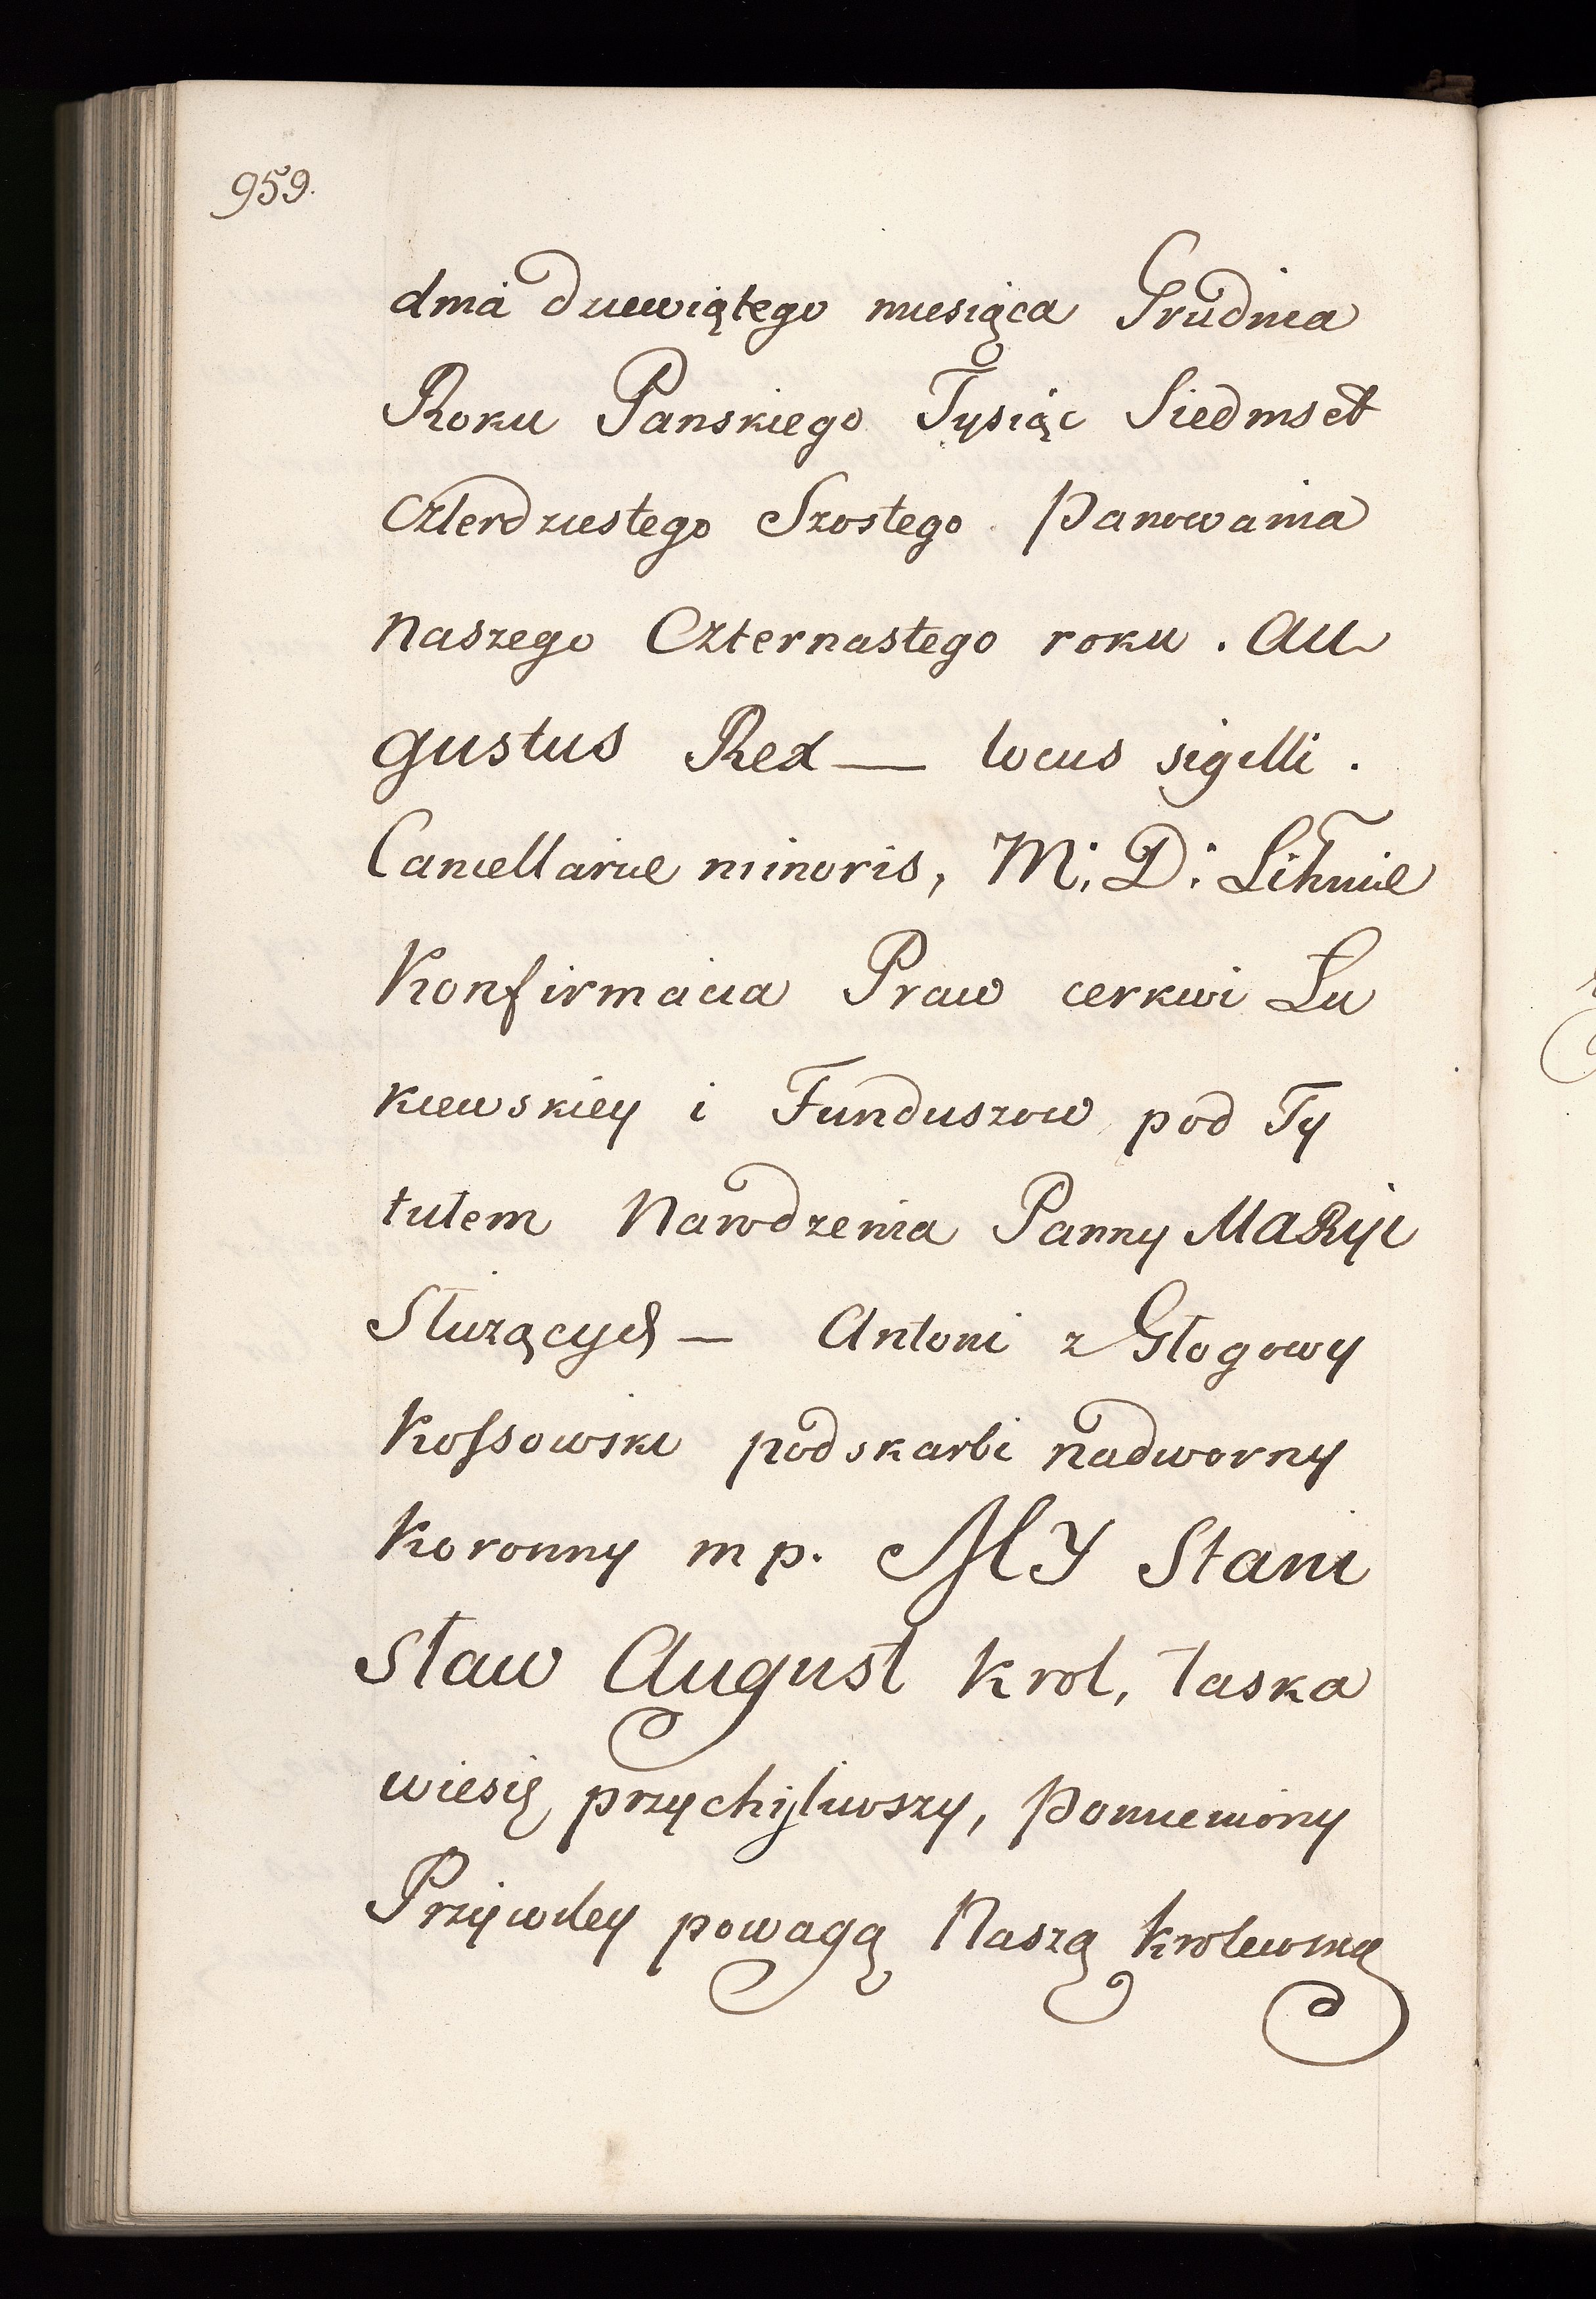 959.
dnia dziewiątego miesiąca Grudnia
Roku Panskiego Tysiąc Siedmset
czterdziestego Szostego Panowania
naszego Czternastego roku. Au
gustus Rex — locus sigilli.
Cancellariae minoris, M: D: Lithuae
Konfirmacia Praw cerkwi Łu
kiewskiey i Funduszow pod Ty
tułem Narodzenia Panny MARyi
Służących — Antoni z Głogowy
Kossowski podskarbi nadworny
Koronny mp. MY Stani
sław August Krol, łaska
wiesię przychijliwszy, Pomieniony
Przywiley powagą Naszą krolewską